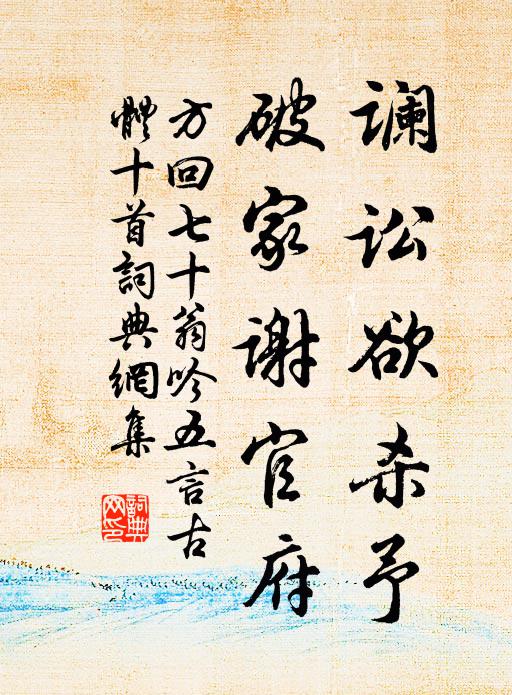 谰讼欲杀予
破家谢官府
方回七十翁吟五言古
體十首詞典網集
詞典
网印